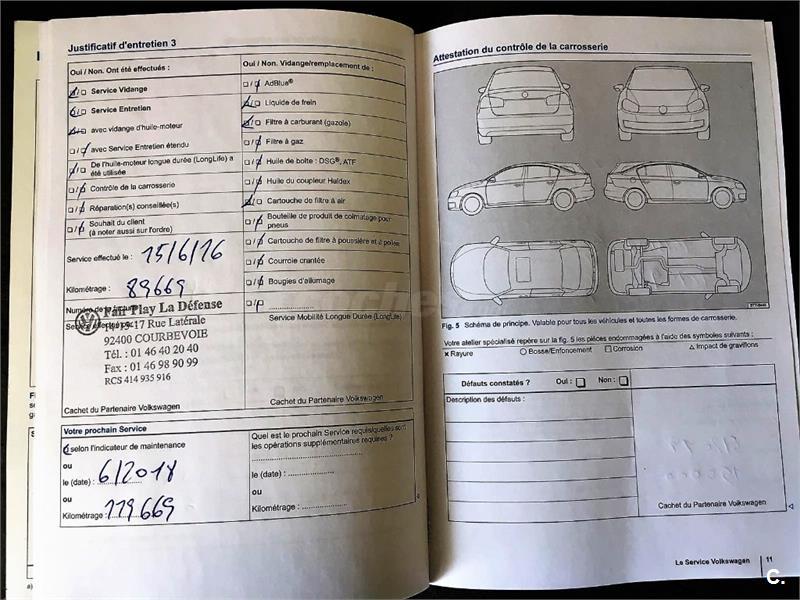 Justificatif d'entretien 3
Oui / Non. Ont été effectués :
Service Vidange
Service Entretien
avec vidange d'huile-moteur
avec Service Entretien étendu
De l'huile-moteur longue durée (LongLife) a
été utilisée
Contrôle de la carrosserie
Réparation(s) conseillée(s)
Souhait du client
(à noter aussi sur l'ordre)
Service effectué le : 15/6/16
Kilométrage : 89669
Fair Play La Défense
17 Rue Latérale
92400 COURBEVOIE
Tél. : 01 46 40 20 40
Fax : 01 46 98 90 99
RCS 414 935 916
Cachet du Partenaire Volkswagen
Oui / Non. Vidange/remplacement de :
AdBlue®
Liquide de frein
Filtre à carburant (gazole)
Filtre à gaz
Huile de boîte : DSG®, ATF
Huile du coupleur Haldex
Cartouche de filtre à air
Bouteille de produit de colmatage pour
pneus
Cartouche de filtre à poussière et à pollen
Courroie crantée
Bougies d'allumage
Service Mobilité Longue Durée (LongLife)
Cachet du Partenaire Volkswagen
Votre prochain Service
selon l'indicateur de maintenance
ou
le (date) : 6/2018
ou
Kilométrage : 119669
Quel est le prochain Service requis/quelles sont
les opérations supplémentaires requises ?
le (date) :
ou
Kilométrage :
Attestation du contrôle de la carrosserie
Fig. 5 Schéma de principe. Valable pour tous les véhicules et toutes les formes de carrosserie.
Votre atelier spécialisé repère sur la fig. 5 les pièces endommagées à l'aide des symboles suivants :
× Rayure ○ Bosse/Enfoncement □ Corrosion △ Impact de gravillons
Défauts constatés ? Oui : □ Non : □
Description des défauts :
Cachet du Partenaire Volkswagen
Le Service Volkswagen 11
C.